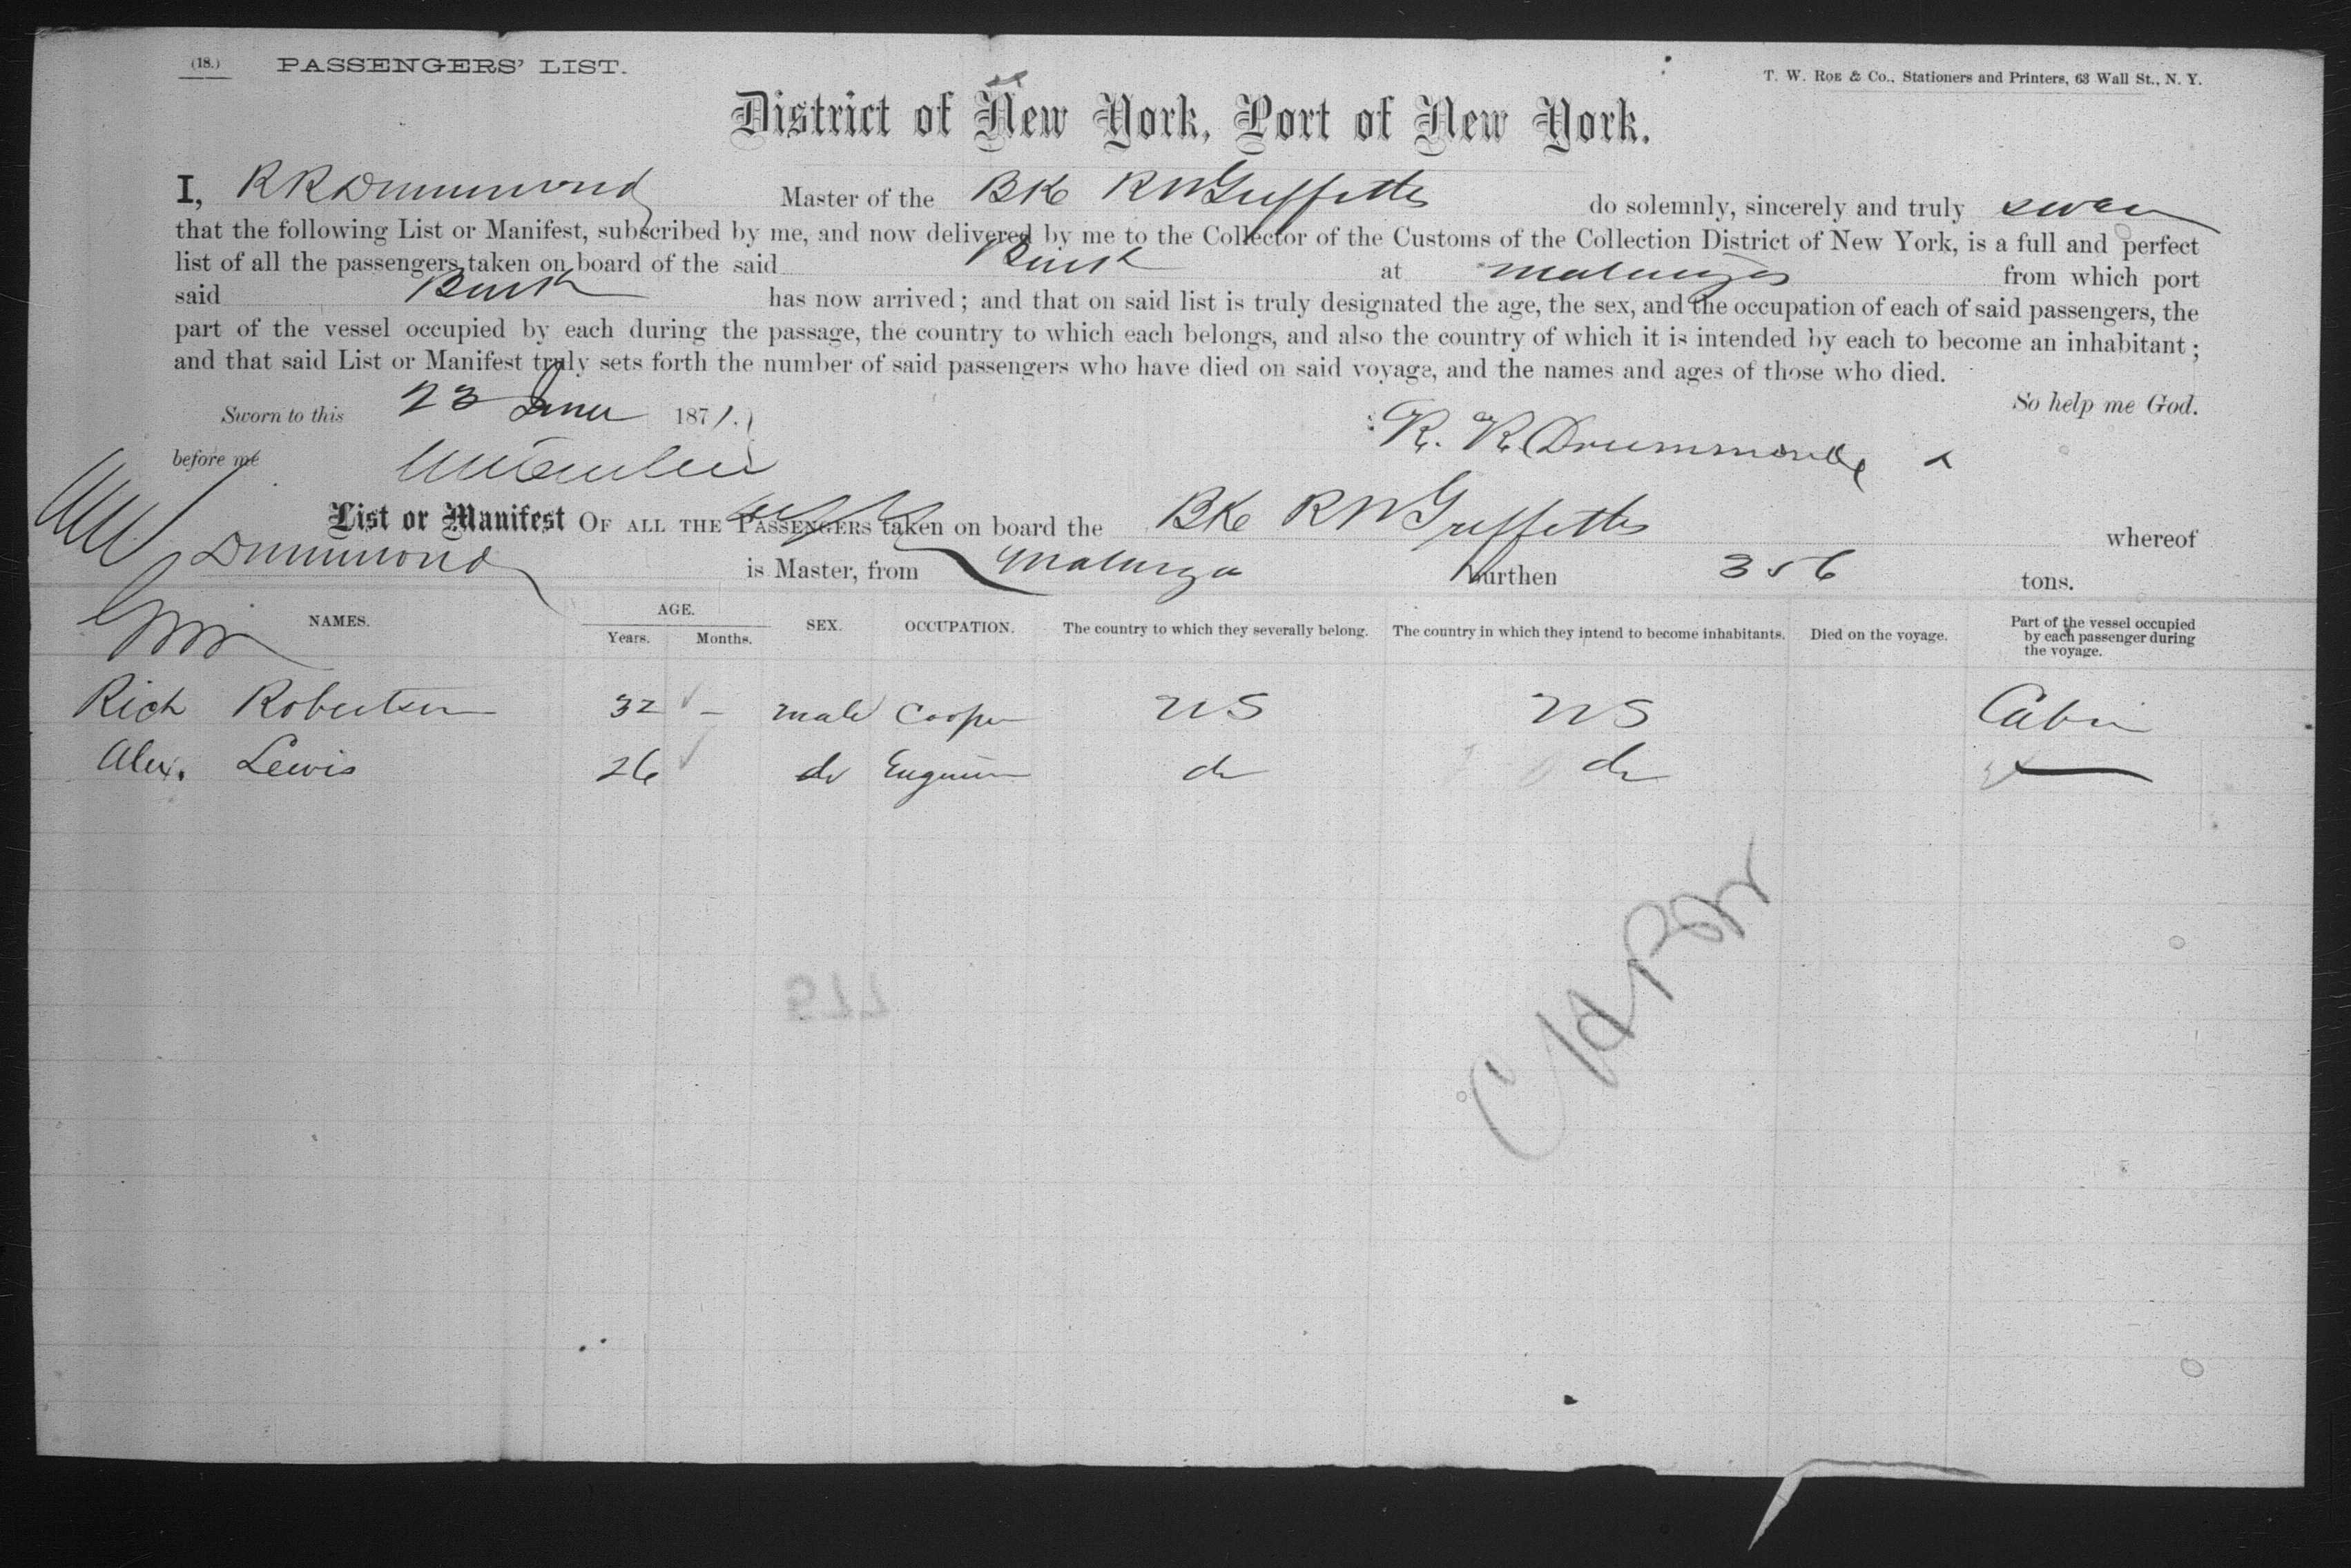 (18.) PASSENGERS' LIST.
T. W. ROE & Co., Stationers and Printers, 63 Wall St., N. Y.
District of New York, Port of New York.
I, R R Drummond Master of the BK R W Griffiths do solemnly, sincerely and truly swear
that the following List or Manifest, subscribed by me, and now delivered by me to the Collector of the Customs of the Collection District of New York, is a full and perfect
list of all the passengers taken on board of the said Bark at from which port
said Bark has now arrived; and that on said list is truly designated the age, the sex, and the occupation of each of said passengers, the
part of the vessel occupied by each during the passage, the country to which each belongs, and also the country of which it is intended by each to become an inhabitant;
and that said List or Manifest truly sets forth the number of said passengers who have died on said voyage, and the names and ages of those who died.
So help me God.
Sworn to this 23 June 1871.
R. R. Drummond
before me
List or Manifest OF ALL THE PASSENGERS taken on board the BK R W Griffiths whereof
Drummond is Master, from burthen 356 tons.
NAMES. AGE. Years. Months. SEX. OCCUPATION. The country to which they severally belong. The country in which they intend to become inhabitants. Died on the voyage. Part of the vessel occupied by each passenger during the voyage.
Rich Robertson 32 – male Cooper US US Cabin
Alex. Lewis 26 do Engineer do do
577